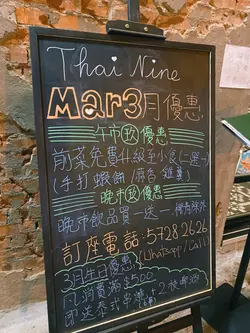 Thai Nine
Mar 3月優惠
午市 優惠
前菜免費升級至小食(二選一)
(手打蝦餅/
晚市 優惠
晚市飲品買一送一
訂座電話:57282626
(Whatsapp/Call)
3月生日優惠
凡消費滿$500
即送泰式串燒2